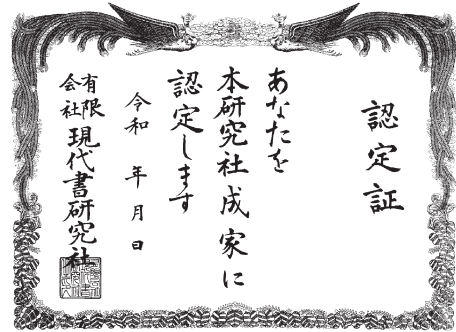 認定証
あなたを
本研究社成家に
認定します
令和 年 月 日
有限会社 現代書研究社